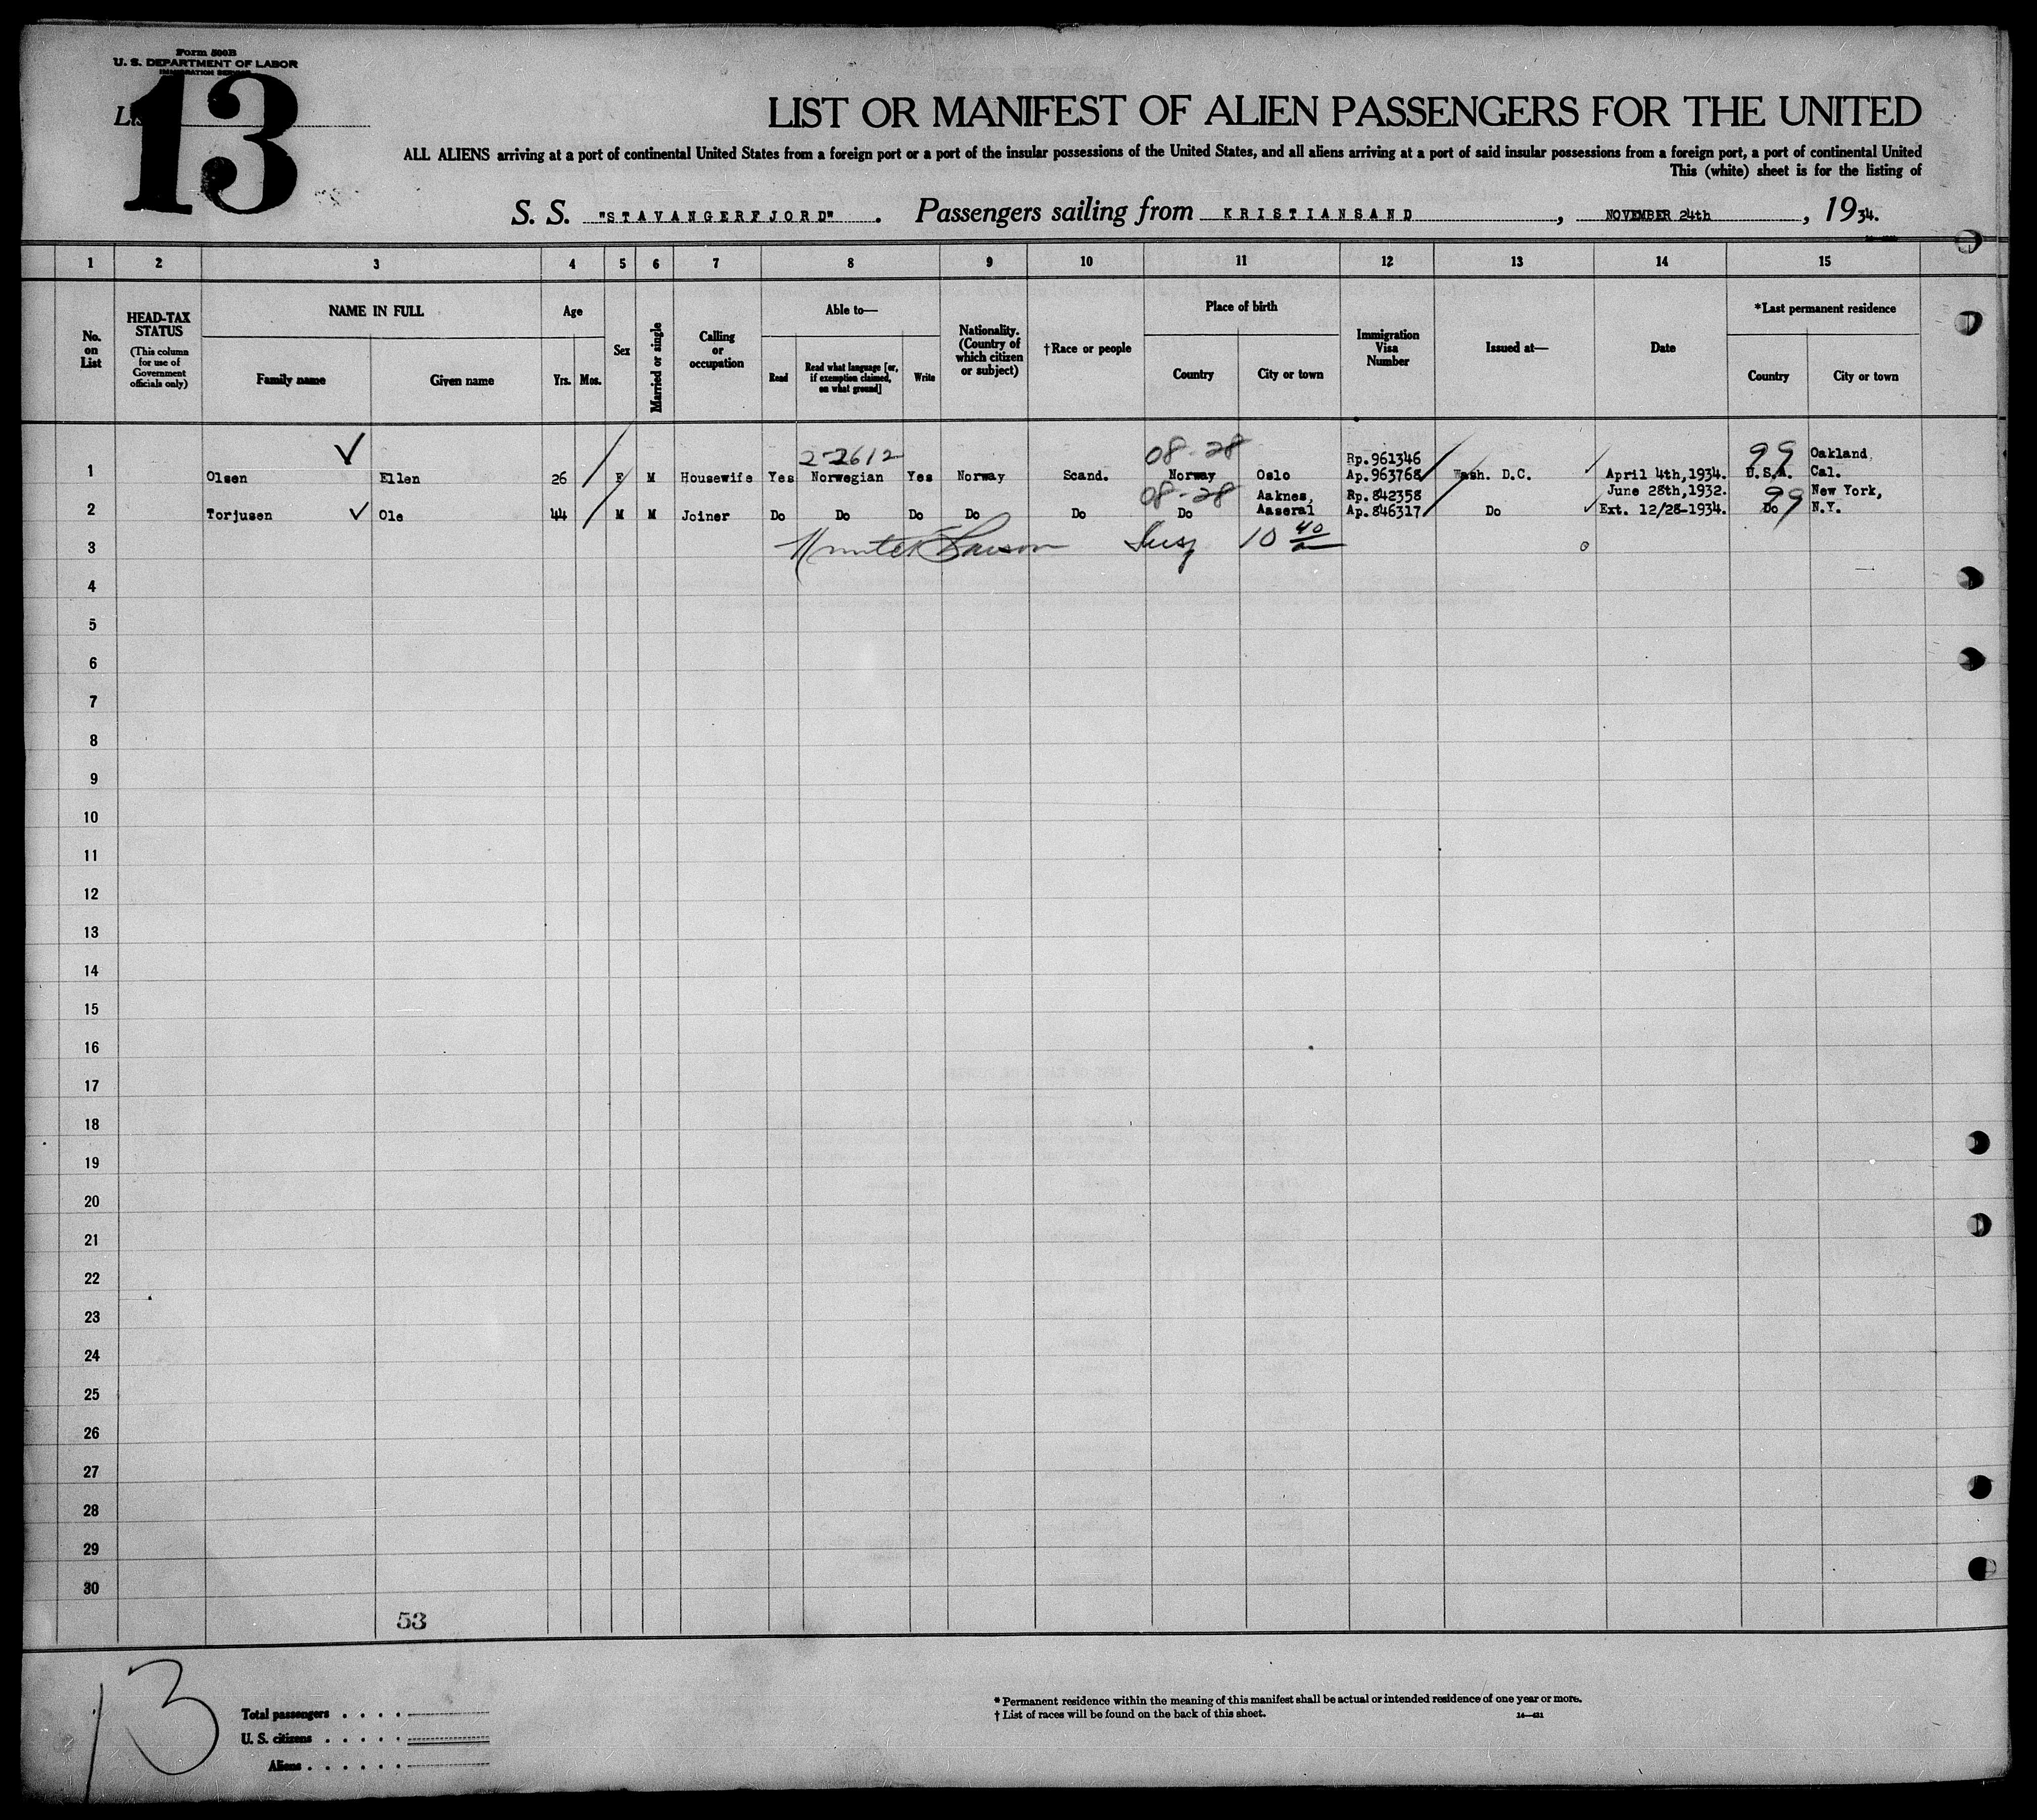 Form 500B
U. S. DEPARTMENT OF LABOR
IMMIGRATION SERVICE
13
LIST OR MANIFEST OF ALIEN PASSENGERS FOR THE UNITED
ALL ALIENS arriving at a port of continental United States from a foreign port or a port of the insular possessions of the United States, and all aliens arriving at a port of said insular possessions from a foreign port, a port of continental United
This (white) sheet is for the listing of
S. S. "STAVANGERFJORD". Passengers sailing from KRISTIANSAND, NOVEMBER 24th, 1934.
1 2 3 4 5 6 7 8 9 10 11 12 13 14 15
No. on List
HEAD-TAX STATUS
(This column for use of Government officials only)
NAME IN FULL
Family name Given name
Age
Yrs. Mos.
Sex
Married or single
Calling or occupation
Able to—
Read Read what language [or, if exemption claimed, on what ground] Write
Nationality. (Country of which citizen or subject)
†Race or people
Place of birth
Country City or town
Immigration Visa Number
Issued at—
Date
*Last permanent residence
Country City or town
2-2612 08-28 Rp.961346 99 Oakland,
1 Olsen Ellen 26 F M Housewife Yes Norwegian Yes Norway Scand. Norway Oslo Ap.963768 Wash. D.C. April 4th,1934. U.S.A. Cal.
08-28 Aaknes, Rp.842358 June 28th,1932. 99 New York,
2 Torjusen Ole 44 M M Joiner Do Do Do Do Do Do Aaseral Ap.846317 Do Ext. 12/28-1934. Do N.Y.
3 10 40
4
5
6
7
8
9
10
11
12
13
14
15
16
17
18
19
20
21
22
23
24
25
26
27
28
29
30
53
13
Total passengers . . . .
U. S. citizens . . . . .
Aliens . . . . . .
* Permanent residence within the meaning of this manifest shall be actual or intended residence of one year or more.
† List of races will be found on the back of this sheet.